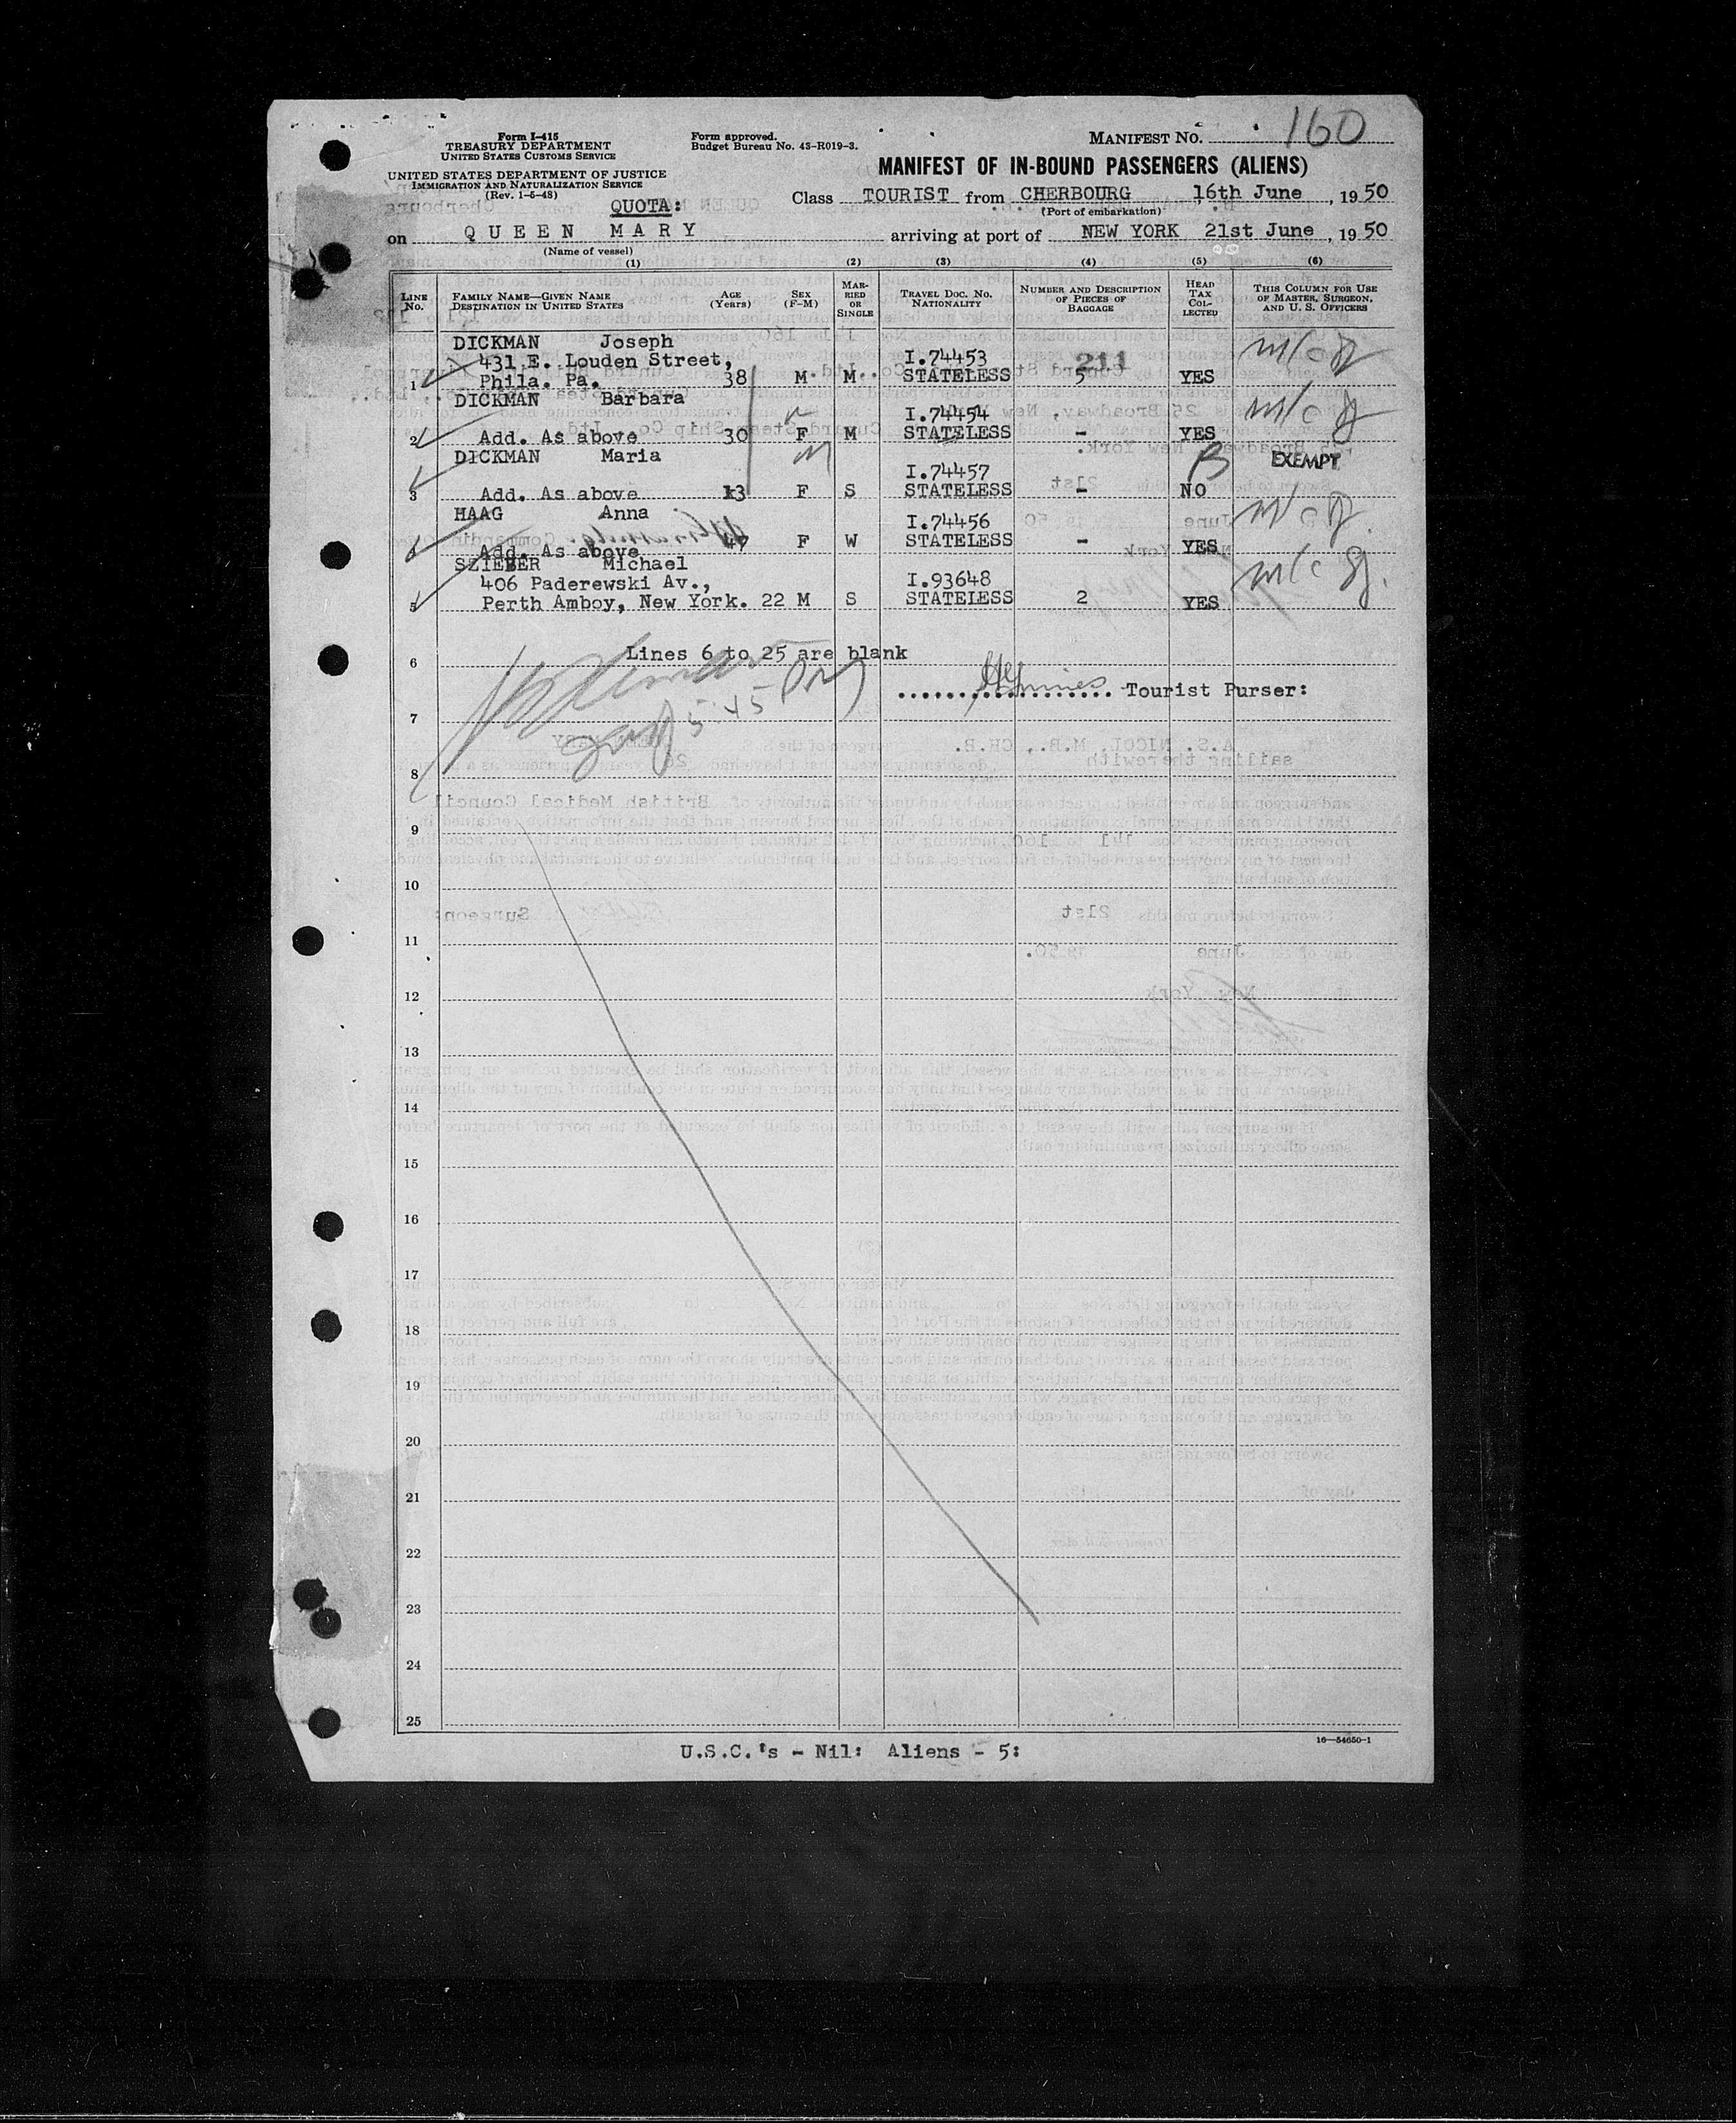 Form I-415
TREASURY DEPARTMENT
UNITED STATES CUSTOMS SERVICE
UNITED STATES DEPARTMENT OF JUSTICE
IMMIGRATION AND NATURALIZATION SERVICE
(Rev. 1-5-48)
Form approved.
Budget Bureau No. 43-R019-3.
MANIFEST NO. 160
MANIFEST OF IN-BOUND PASSENGERS (ALIENS)
QUOTA:
Class TOURIST from CHERBOURG, 16th June, 1950
(Port of embarkation)
on QUEEN MARY arriving at port of NEW YORK 21st June, 1950
(Name of vessel)
(1) (2) (3) (4) (5) (6)
LINE NO. FAMILY NAME—GIVEN NAME DESTINATION IN UNITED STATES AGE (Years) SEX (F-M) MARRIED OR SINGLE TRAVEL DOC. NO. NATIONALITY NUMBER AND DESCRIPTION OF PIECES OF BAGGAGE HEAD TAX COLLECTED THIS COLUMN FOR USE OF MASTER, SURGEON, AND U. S. OFFICERS
DICKMAN Joseph
431 E. Louden Street, I.74453 211
1 Phila. Pa. 38 M M STATELESS 5 YES
DICKMAN Barbara
I.74454
2 Add. As above 30 F M STATELESS - YES
DICKMAN Maria EXEMPT
I.74457
3 Add. As above 13 F S STATELESS - NO
HAAG Anna
I.74456
4 Add. As above 47 F W STATELESS - YES
SZIEBER Michael
406 Paderewski Av., I.93648
5 Perth Amboy, New York. 22 M S STATELESS 2 YES
6 Lines 6 to 25 are blank
Tourist Purser:
5.45 Pm
7
8
9
10
11
12
13
14
15
16
17
18
19
20
21
22
23
24
25
16—54650-1
U.S.C.'s - Nil: Aliens - 5: